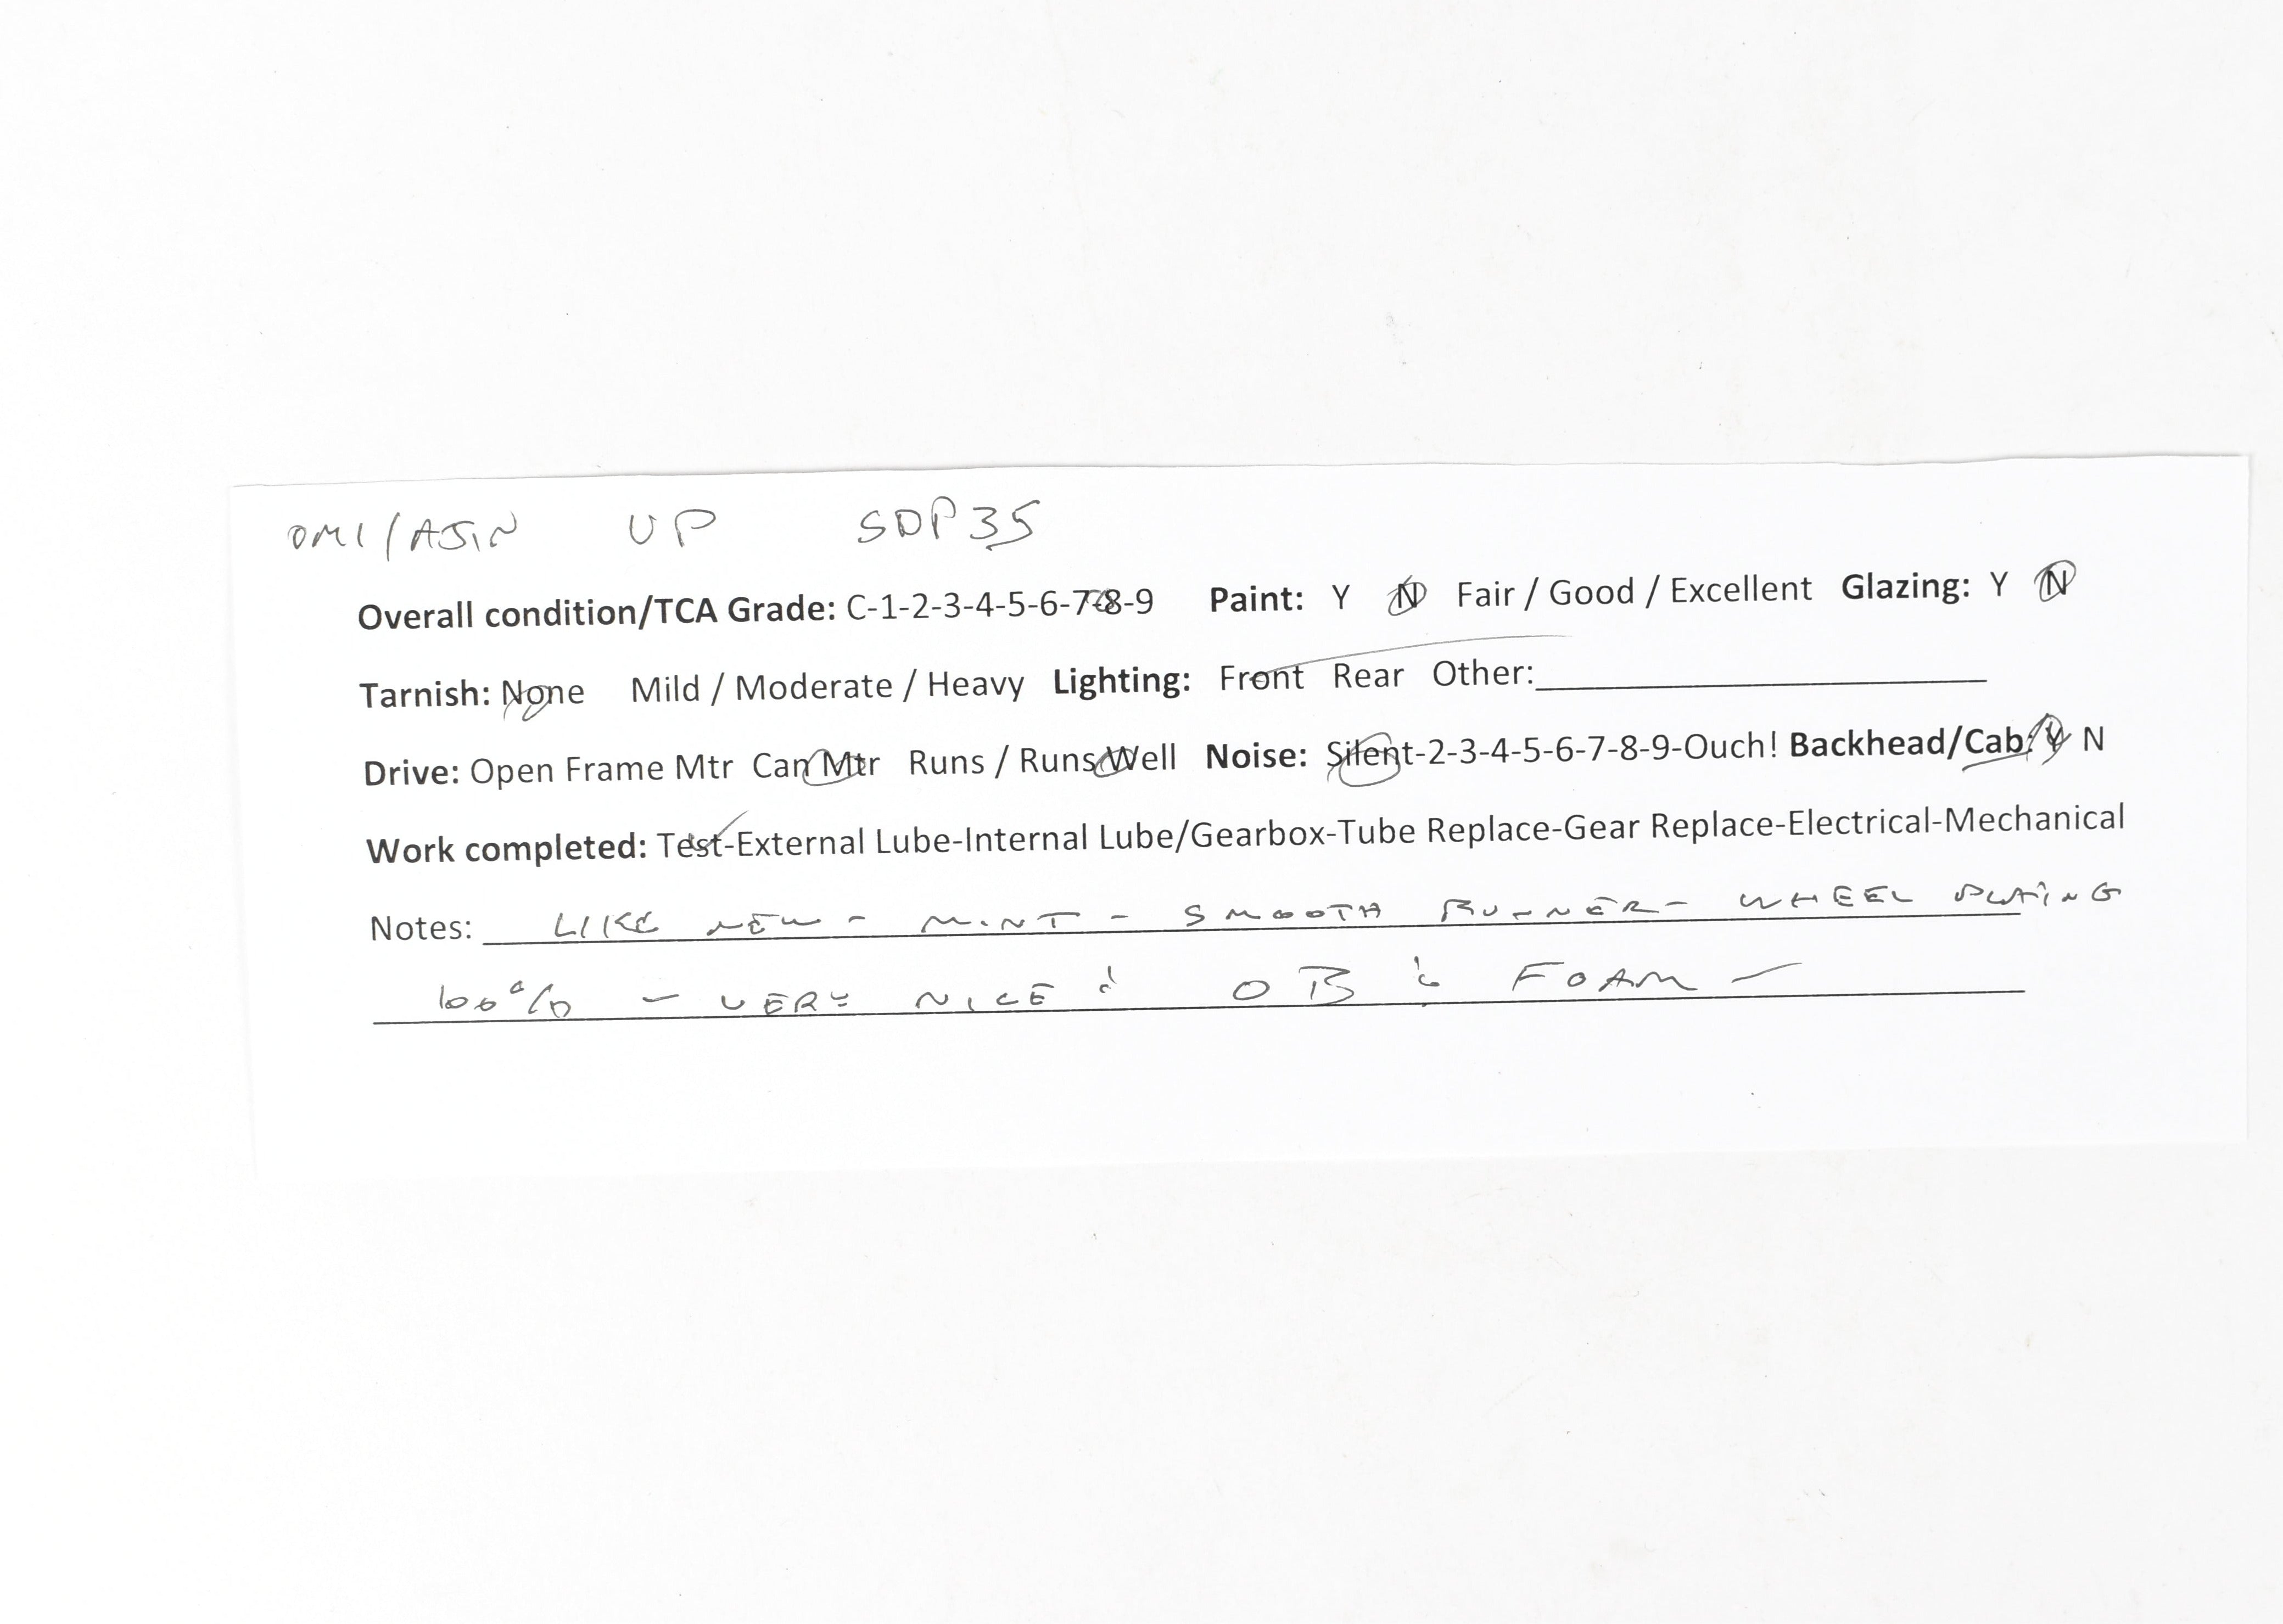 OMI/AJIN UP SDP35
Overall condition/TCA Grade: C-1-2-3-4-5-6-7-8-9 Paint: Y N Fair / Good / Excellent Glazing: Y N
Tarnish: None Mild / Moderate / Heavy Lighting: Front Rear Other:
Drive: Open Frame Mtr Can Mtr Runs / Runs Well Noise: Silent-2-3-4-5-6-7-8-9-Ouch! Backhead/Cab: Y N
Work completed: Test-External Lube-Internal Lube/Gearbox-Tube Replace-Gear Replace-Electrical-Mechanical
Notes: LIKE NEW - MINT - SMOOTH RUNNER - WHEEL PLATING
100% - VERY NICE & OB & FOAM -